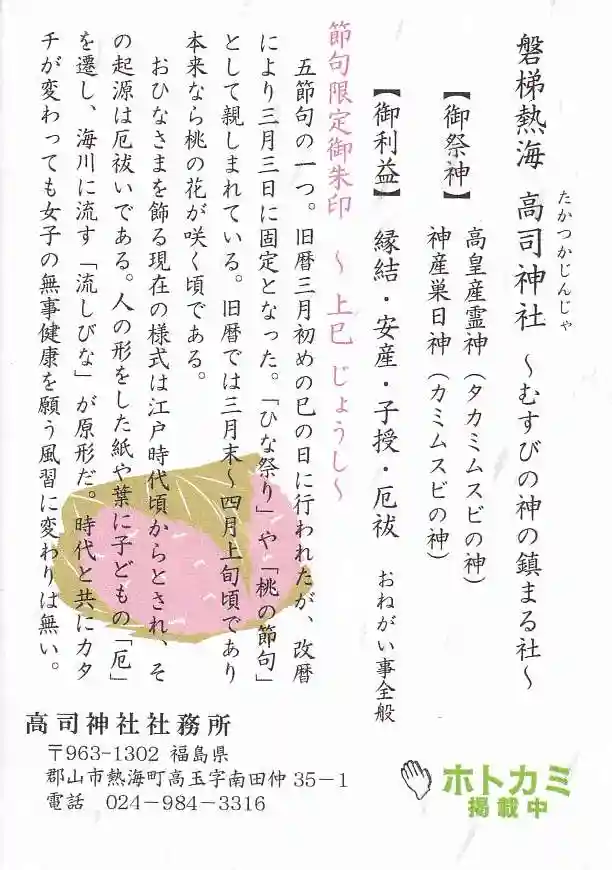 磐梯熱海 高司神社 ~むすびの神の鎮まる社~
たかつかじんじゃ
【御祭神】
高皇産霊神(タカミムスビの神)
神産巣日神(カミムスビの神)
【御利益】 縁結・安産・子授・厄祓 おねがい事全般
節句限定御朱印 ~上巳 じょうし~
五節句の一つ。旧暦三月初めの巳の日に行われたが、改暦
により三月三日に固定となった。「ひな祭り」や「桃の節句」
として親しまれている。旧暦では三月末~四月上旬頃であり
本来なら桃の花が咲く頃である。
おひなさまを飾る現在の様式は江戸時代頃からとされ、そ
の起源は厄祓いである。人の形をした紙や葉に子どもの「厄」
を遷し、海川に流す「流しびな」が原形だ。時代と共にカタ
チが変わっても女子の無事健康を願う風習に変わりは無い。
高司神社社務所
〒963-1302 福島県
郡山市熱海町高玉字南田仲35-1
電話 024-984-3316
ホトカミ
掲載中